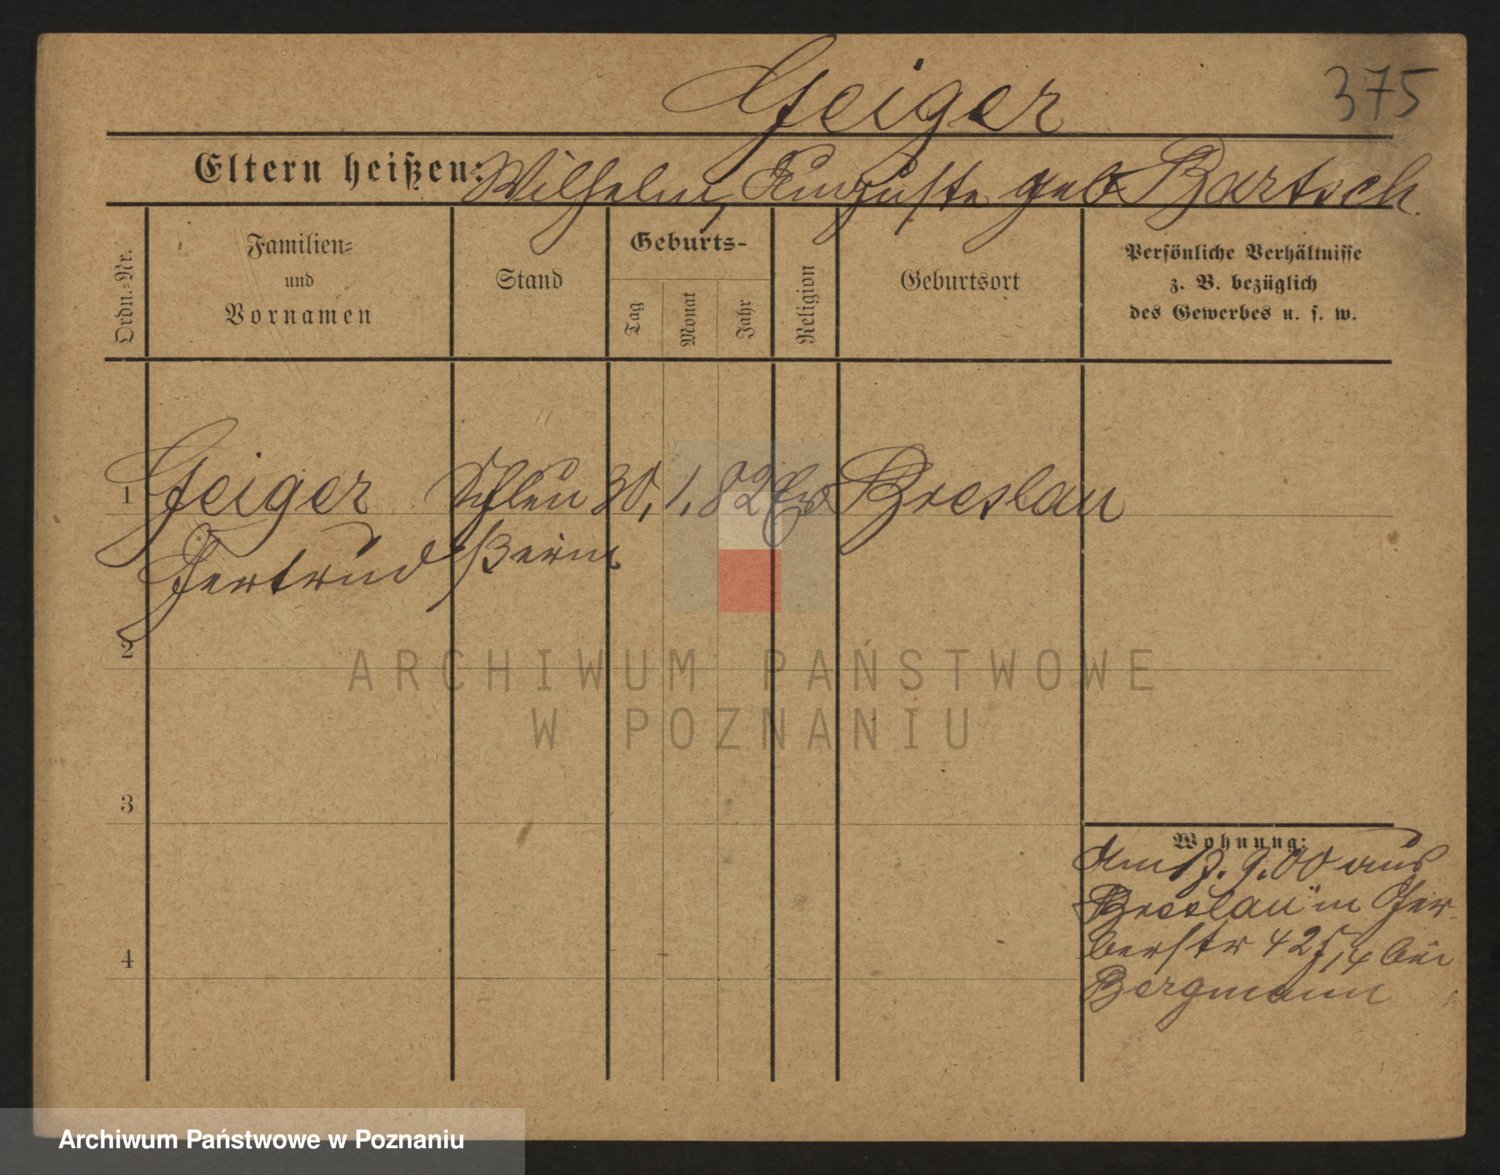 Geiger
375
Eltern heißen: Wilhelm, Auguste geb Bartsch
Ordn.-Nr.
Familien-
und
Vornamen
Stand
Geburts-
Tag
Monat
Jahr
Religion
Geburtsort
Persönliche Verhältnisse
z. B. bezüglich
des Gewerbes u. s. w.
1 Geiger 30. 1. 82 Ev Breslau
Gertrud
2
3
4
Wohnung:
Am 9.00 aus
Breslau in Ger-
berstr bei
Bergmann
ARCHIWUM PAŃSTWOWE
W POZNANIU
Archiwum Państwowe w Poznaniu